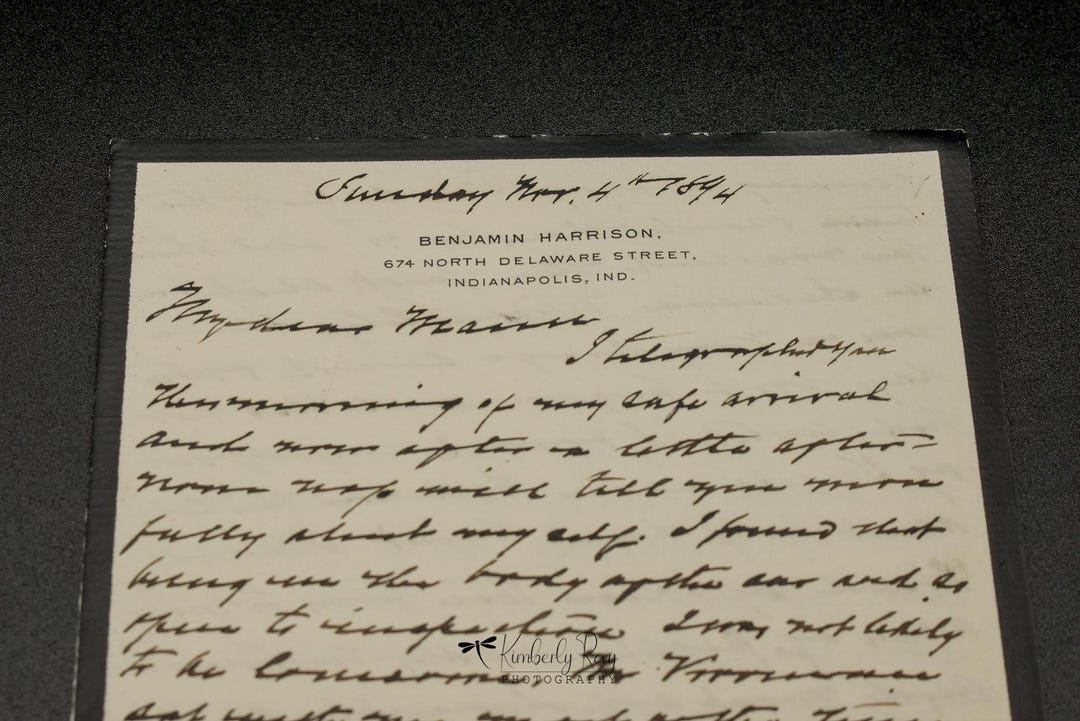 Sunday Nov. 4th 1894
BENJAMIN HARRISON,
674 NORTH DELAWARE STREET,
INDIANAPOLIS, IND.
My dear Mamie
I telegraphed you
this morning of my safe arrival
and now after a little after-
noon nap will tell you more
fully about myself. I found that
being in the body of the car and so
open to inspection I was not likely
to be Mr Vrooman
sat with me
Kimberly Ray
PHOTOGRAPHY